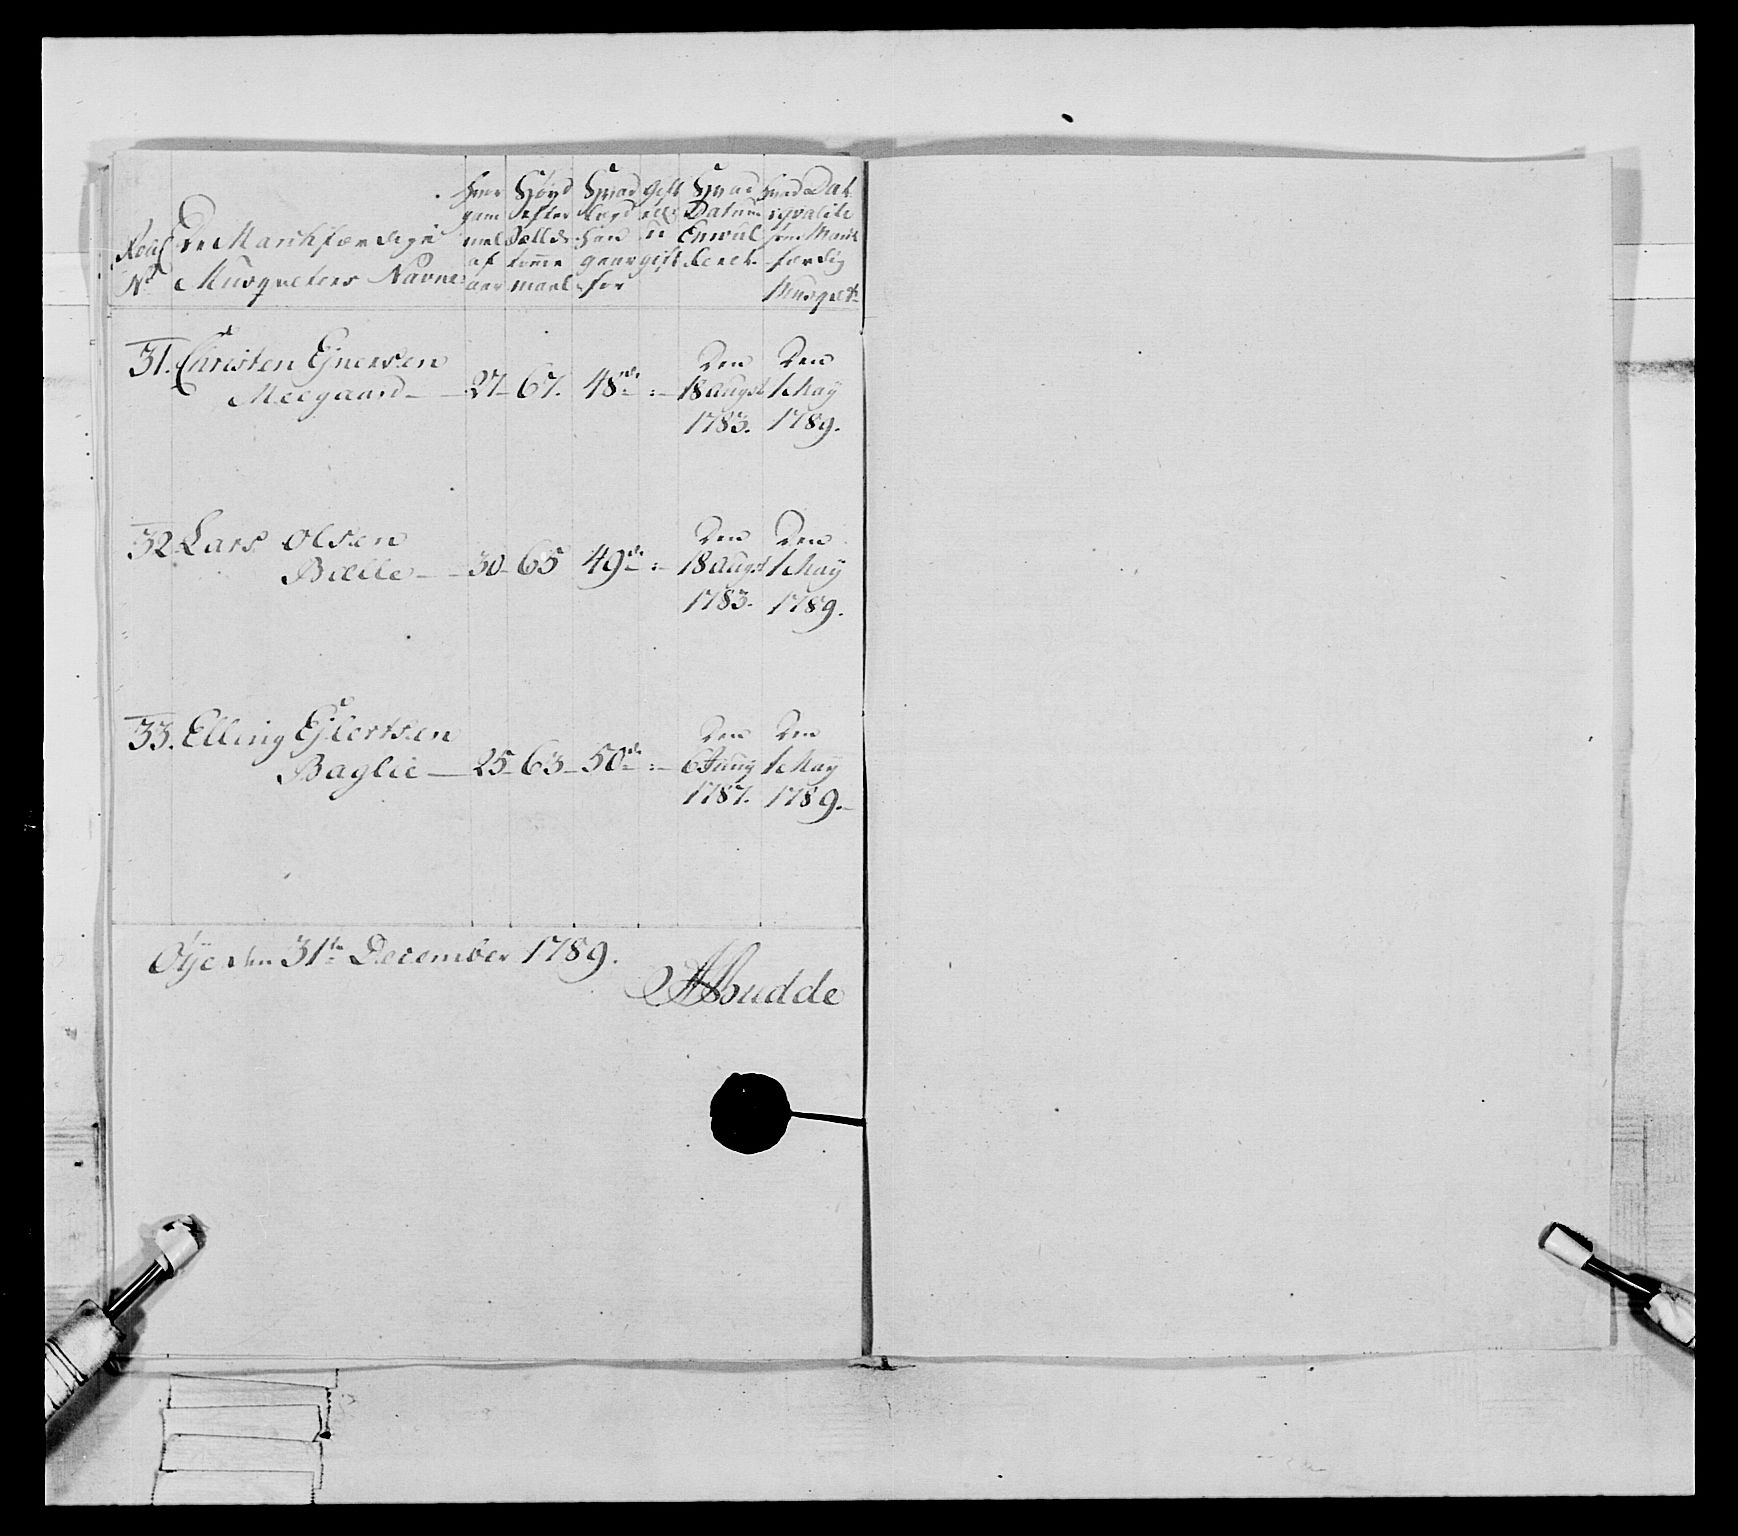 Roul No De Marchfærdige Musqueteers Navne
Hvor gam mel af aar
Høyd efter Sællds tomme maal
Hvad Lægd han giør for
Gift eller u gift
Hvad Datum Enroul leret
Hvad Dat
færdig
31. Christen Ejnersen
Meegaard — 27 — 67. 48de :— Den 18 Augst 1783. Den 1 May 1789.
32 Lars Olsen
Bælle — 30 — 65 49de :— Den 18 Augst 1783. Den 1 May 1789.
33. Elling Ejlertsen
Baglie — 25 — 63 — 50de :— Den 6 Juny 1787. Den 1 May 1789.
Øye den 31te December 1789.
Budde